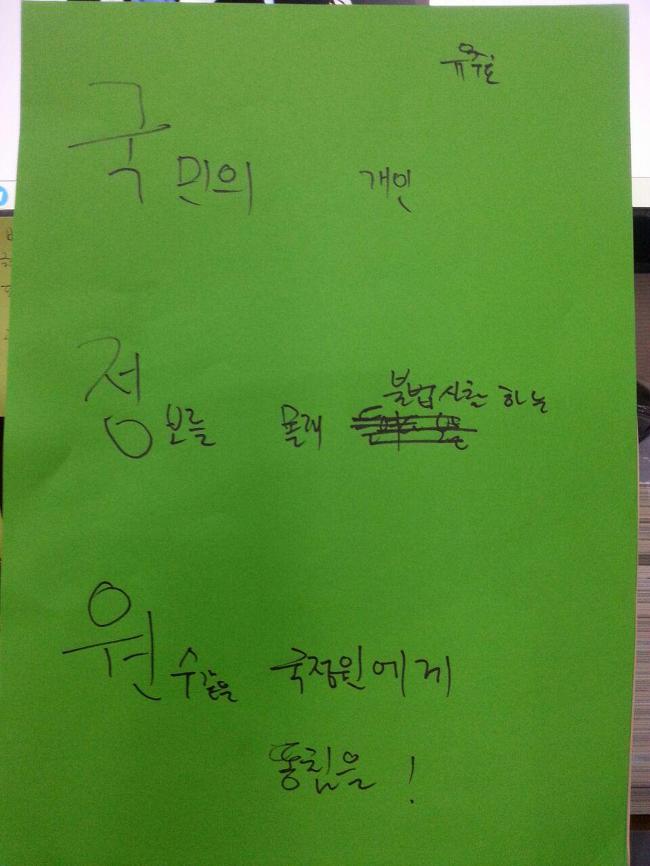 유주호
국민의 개인
정보를 몰래 불법사찰 하는
원수같은 국정원에게
똥침을!